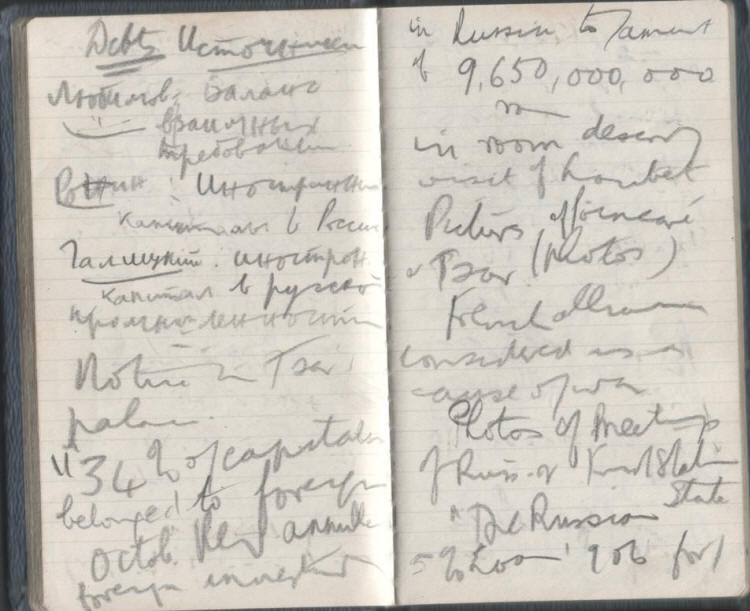 Debts Источники
Любимов. Баланс
взаимных
требований
Ронин: Иностранные
капиталы в России
Галицкий. иностран.
капитал в русской
промышленности
Notice in Tsar's
palace.
"34% of capital
belonged to foreign
Octob. Rev annulled
foreign investment
in Russia to amount
of 9,650,000,000
in room describing
visit of Loubet
Pictures
& Tsar (photos)
French alliance
considered as a
cause of war
Photos of Meetings
of Russ. &
State
"The Russian
5% Loan 1906 for